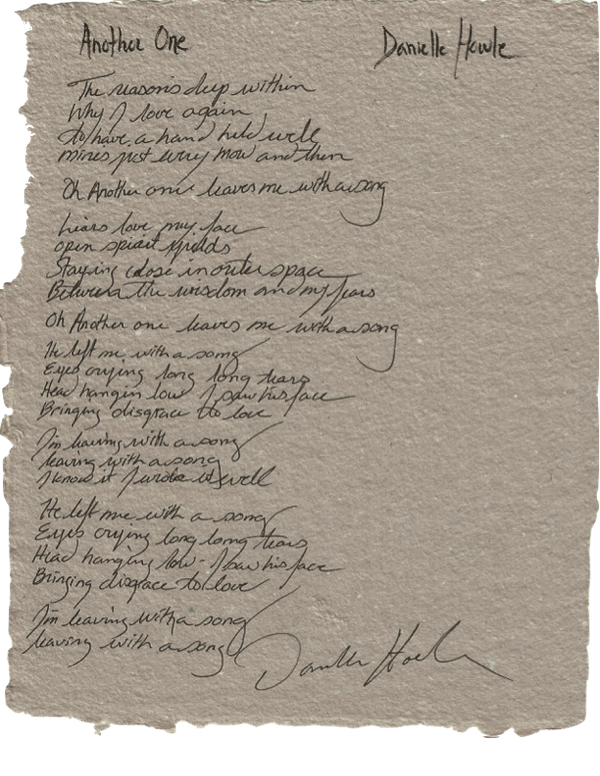 Another One
Danielle Howle
The reason's deep within
Why I love again
to have a hand held well
mines just every now and then
Oh Another one leaves me with a song
Liars love my face
open spirit fields
Staying close in outer space
Between the wisdom and my fears
Oh Another one leaves me with a song
He left me with a song
Eyes crying long long tears
Head hangin low I saw his face
Bringing disgrace to love
I'm leaving with a song
leaving with a song
I know it I wrote it well
He left me with a song
Eyes crying long long tears
Head hanging low - I saw his face
Bringing disgrace to love
I'm leaving with a song
leaving with a song
Danielle Howle